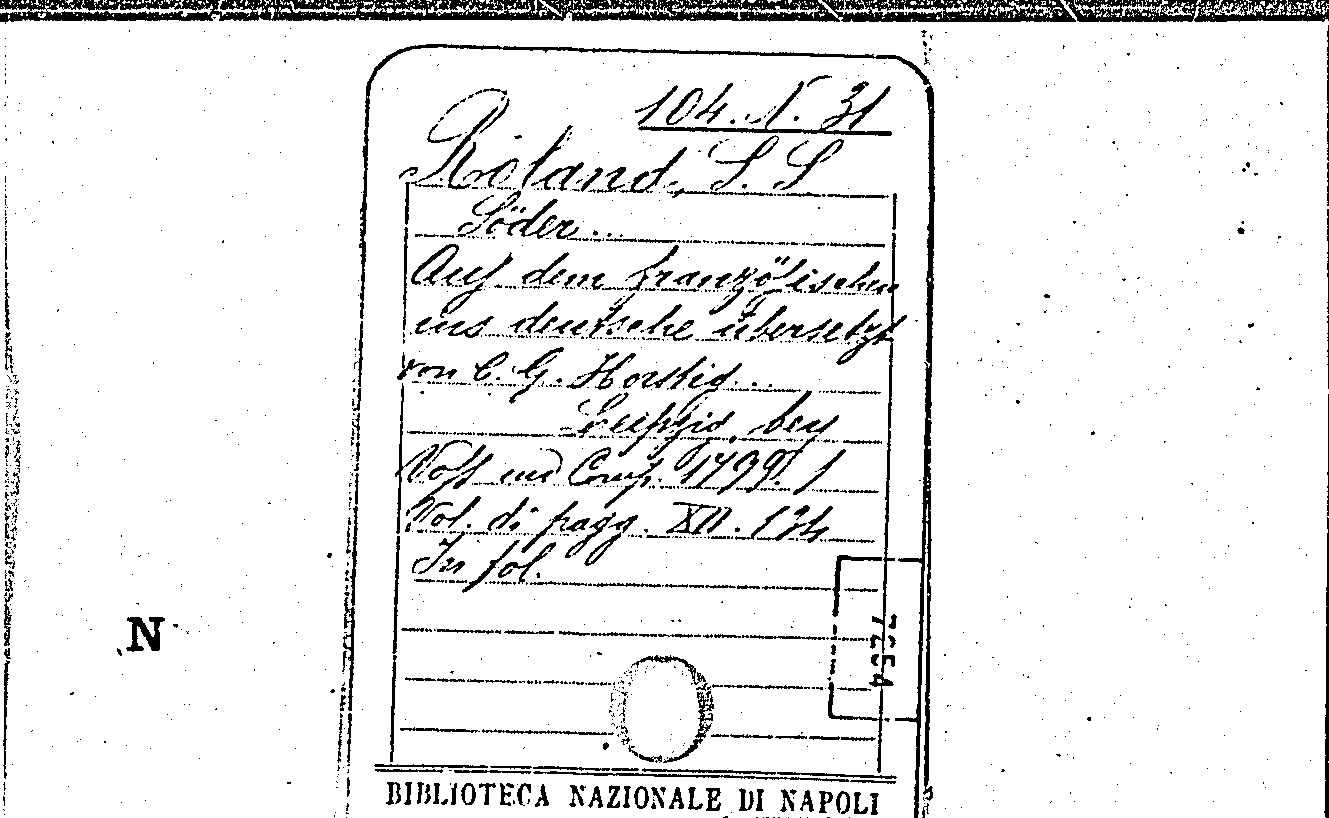 104. N. 31
Roland, S. S.
Söder...
Auf dem französischen
ins deutsche übersetzt
von C. G. Horstig...
Leipzig, bey
Voss und Comp. 1799. 1
Vol. di pagg. XII. 134
In fol.
N
BIBLIOTECA NAZIONALE DI NAPOLI